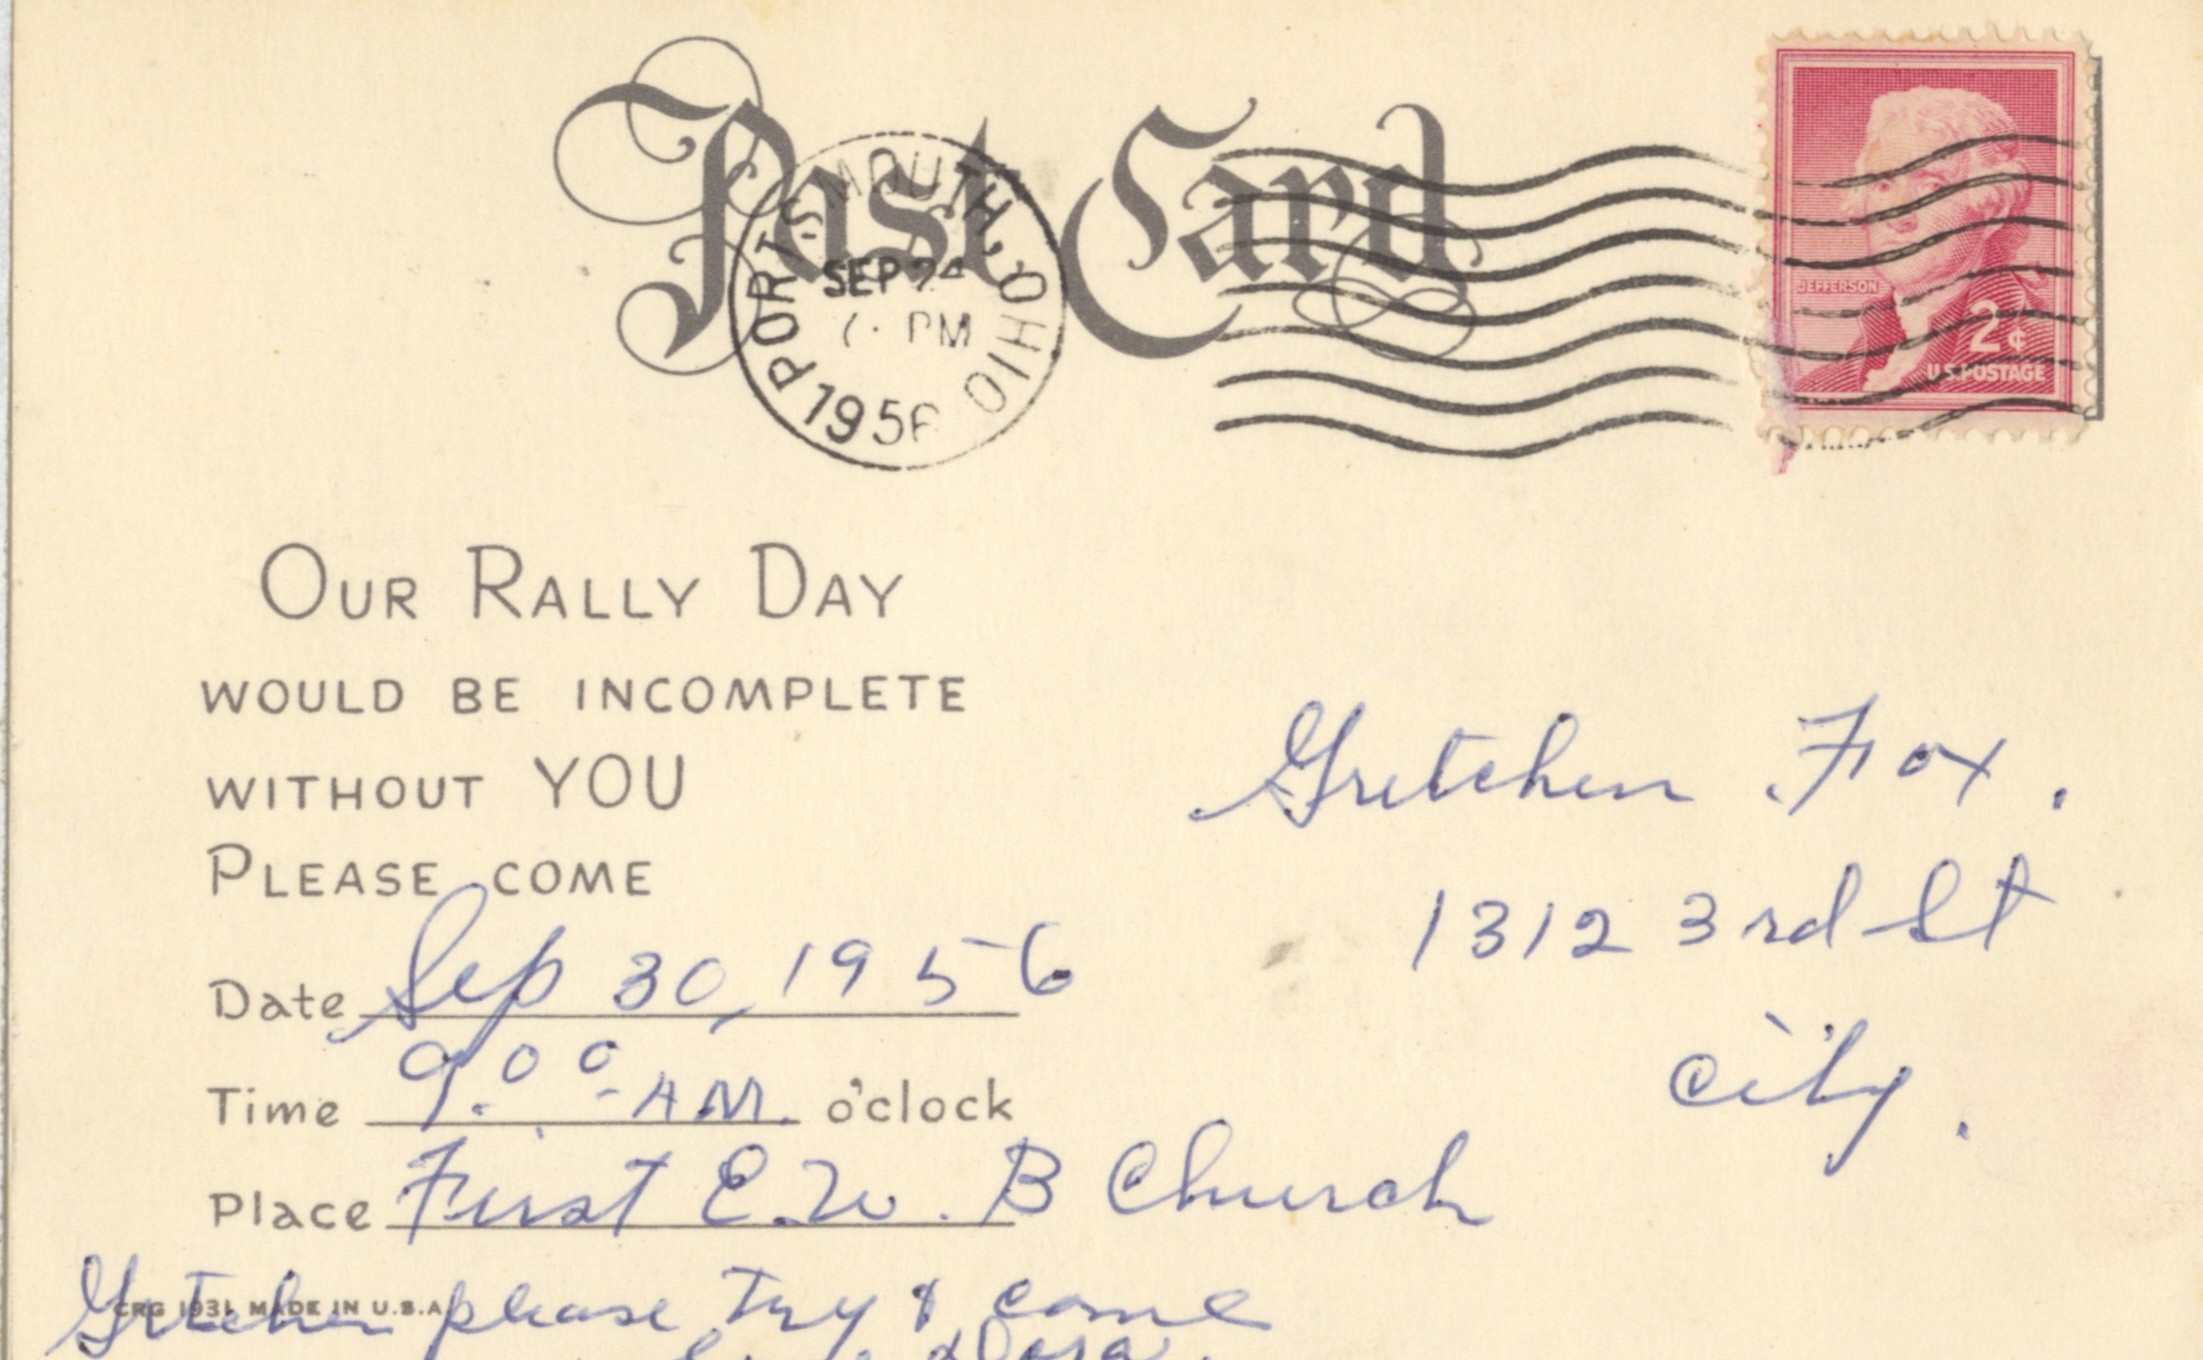 Post Card
PORTSMOUTH, OHIO
SEP 24
PM
1956
JEFFERSON
2¢
U.S. POSTAGE
OUR RALLY DAY
WOULD BE INCOMPLETE
WITHOUT YOU
PLEASE COME
Date Sep 30, 1956
Time 9.00-AM. o'clock
Place First E.U.B Church
Gretchen please try & come
CRG 1931 MADE IN U.S.A.
Gretchen Fox.
1312 3rd St
City.